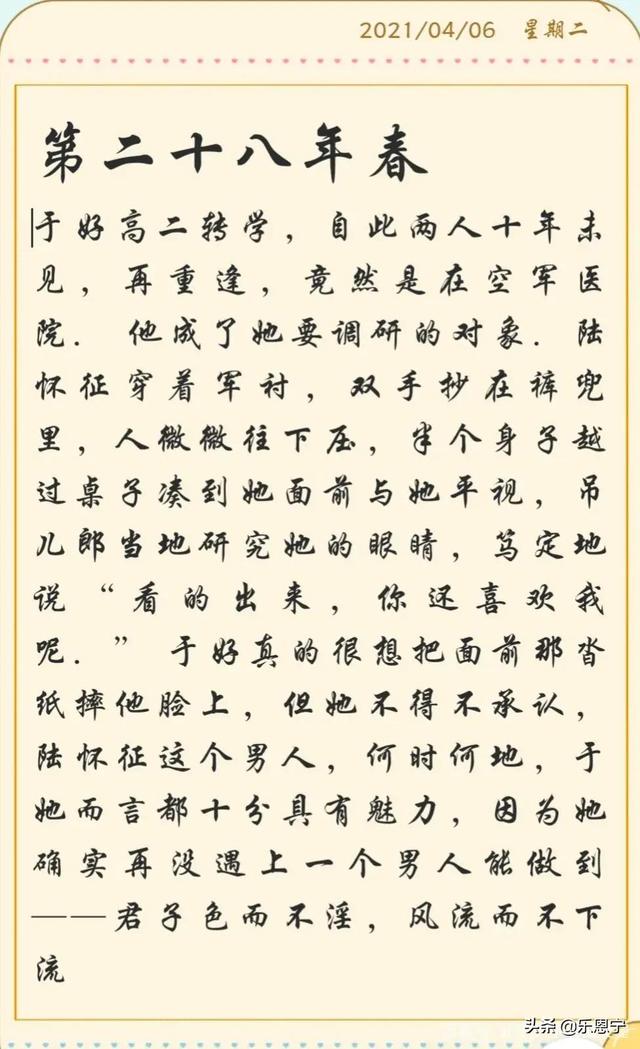 2021/04/06 星期二
第二十八年春
于好高二转学，自此两人十年未
见，再重逢，竟然是在空军医
院．他成了她要调研的对象．陆
怀征穿着军衬，双手抄在裤兜
里，人微微往下压，半个身子越
过桌子凑到她面前与她平视，吊
儿郎当地研究她的眼睛，笃定地
说“看的出来，你还喜欢我
呢．”于好真的很想把面前那沓
纸摔他脸上，但她不得不承认，
陆怀征这个男人，何时何地，于
她而言都十分具有魅力，因为她
确实再没遇上一个男人能做到
——君子色而不淫，风流而不下
流
头条 @乐恩宁